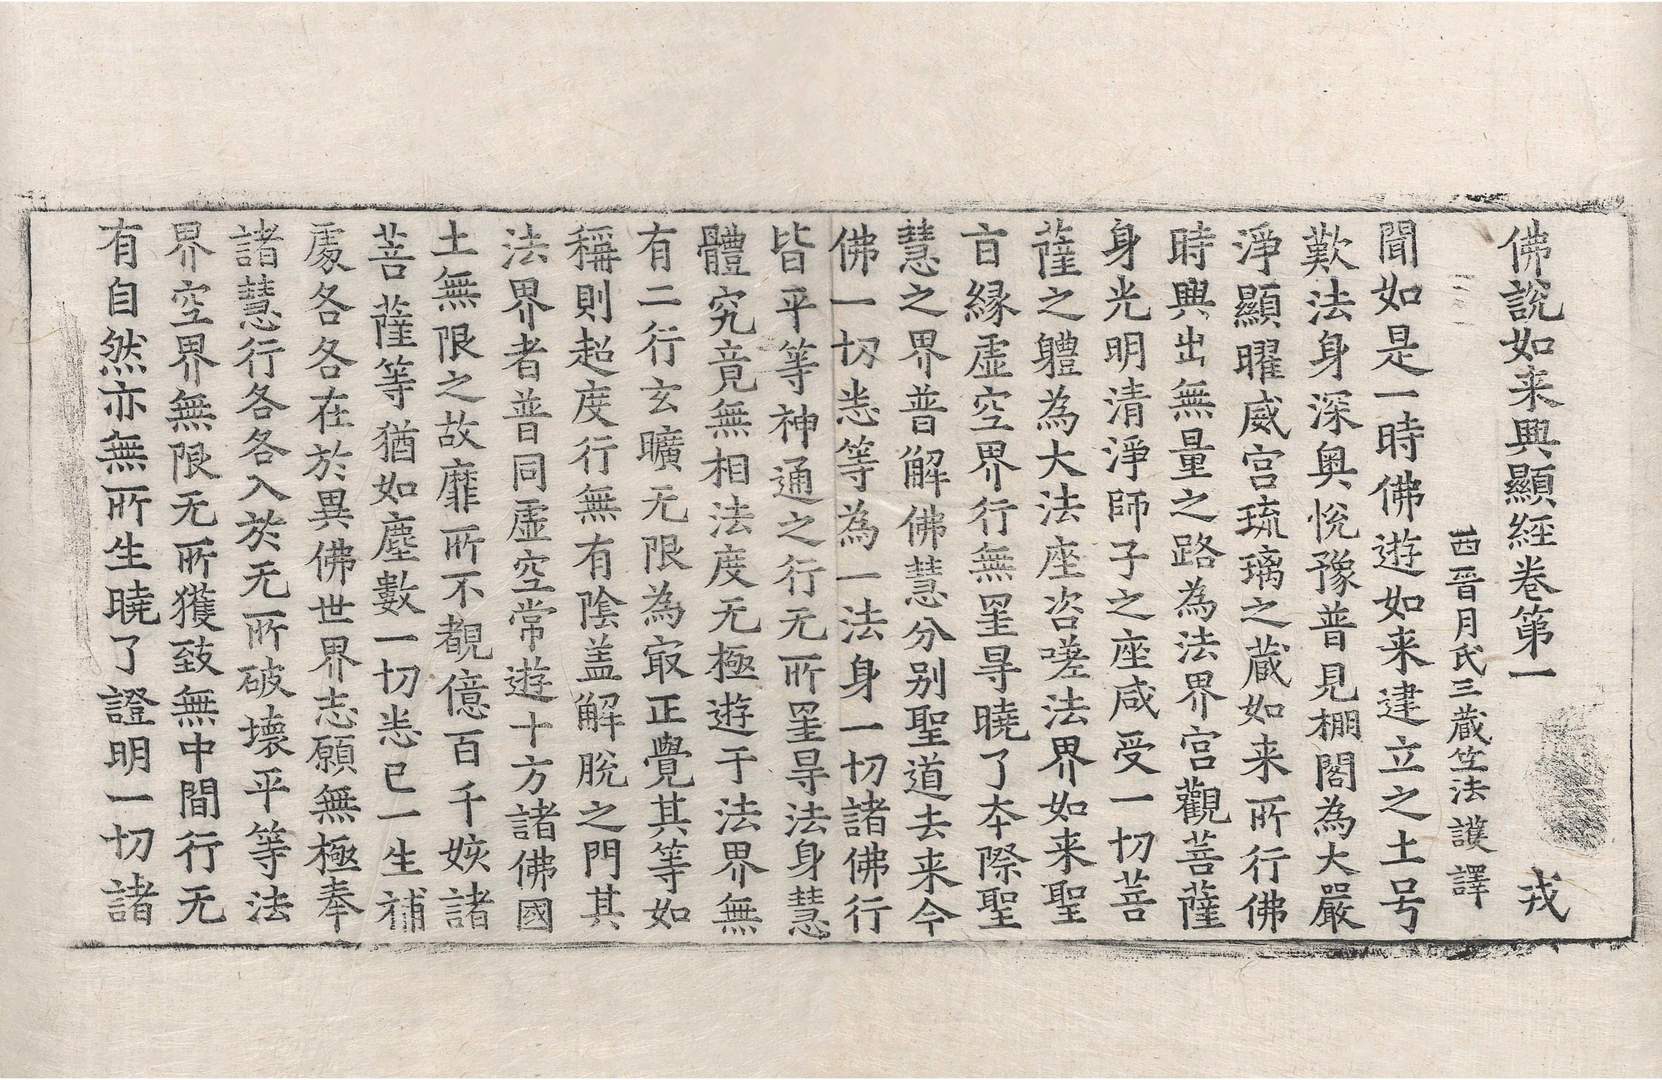 佛說如来興顯經卷第一 戎
西晉月氏三藏竺法護譯
聞如是一時佛遊如来建立之土号
歎法身深奧悅豫普見棚閣為大嚴
淨顯曜威宮琉璃之藏如来所行佛
時興出無量之路為法界宮觀菩薩
身光明清淨師子之座咸受一切菩
薩之軆為大法座咨嗟法界如来聖
旨緣虛空界行無罣㝵曉了本際聖
慧之界普解佛慧分别聖道去来今
佛一切悉等為一法身一切諸佛行
皆平等神通之行无所罣㝵法身慧
體究竟無相法度无極遊于法界無
有二行玄曠无限為㝡正覺其等如
稱則超度行無有陰盖解脫之門其
法界者普同虛空常遊十方諸佛國
土無限之故靡所不覩億百千姟諸
菩薩等猶如塵數一切悉已一生補
處各各在於異佛世界志願無極奉
諸慧行各各入於无所破壞平等法
界空界無限无所獲致無中間行无
有自然亦無所生曉了證明一切諸